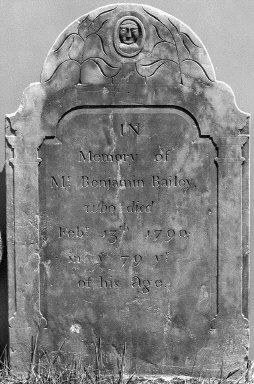 IN
Memory of
Mr. Benjamin Bailey,
who died
Febr. 13th 1790,
in ye 79 yr
of his Age.